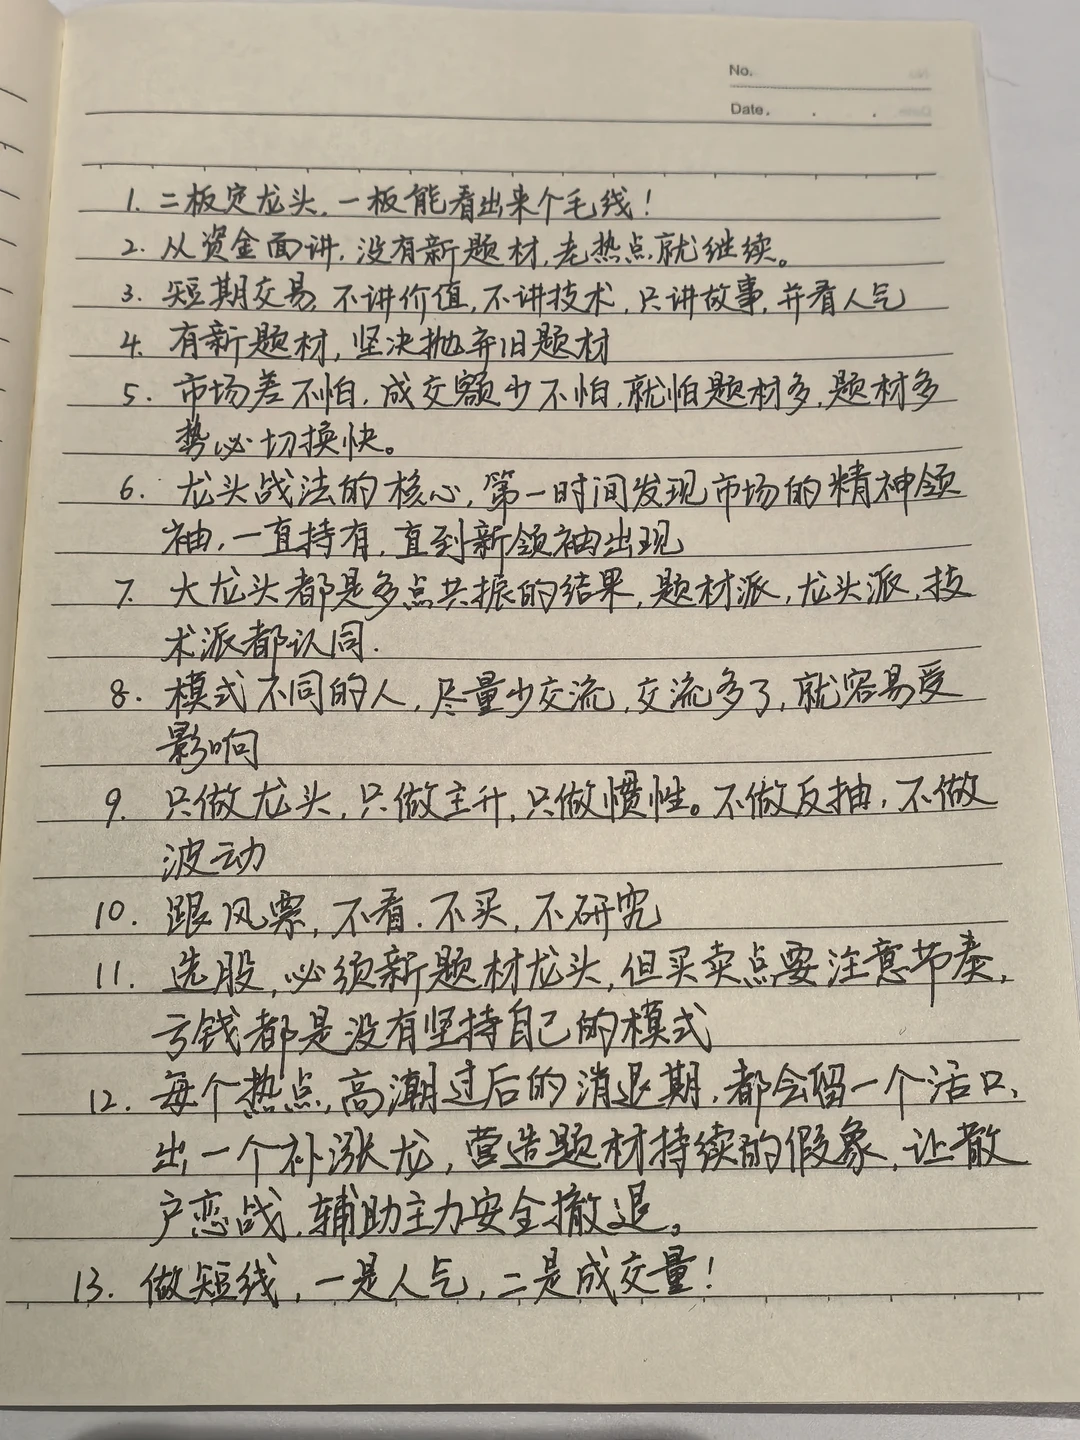 No.
Date.
1. 二板定龙头,一板能看出来个毛线!
2. 从资金面讲,没有新题材,老热点就继续。
3. 短期交易,不讲价值,不讲技术,只讲故事,并看人气
4. 有新题材,坚决抛弃旧题材
5. 市场差不怕,成交额少不怕,就怕题材多,题材多
势必切换快。
6. 龙头战法的核心,第一时间发现市场的精神领
袖,一直持有,直到新领袖出现
7. 大龙头都是多点共振的结果,题材派,龙头派,技
术派都认同.
8. 模式不同的人,尽量少交流,交流多了,就容易受
影响
9. 只做龙头,只做主升,只做惯性。不做反抽,不做
波动
10. 跟风票,不看.不买,不研究
11. 选股,必须新题材龙头,但买卖点要注意节奏,
亏钱都是没有坚持自己的模式
12. 每个热点,高潮过后的消退期,都会留一个活口,
出一个补涨龙,营造题材持续的假象,让散
户恋战,辅助主力安全撤退。
13. 做短线,一是人气,二是成交量!